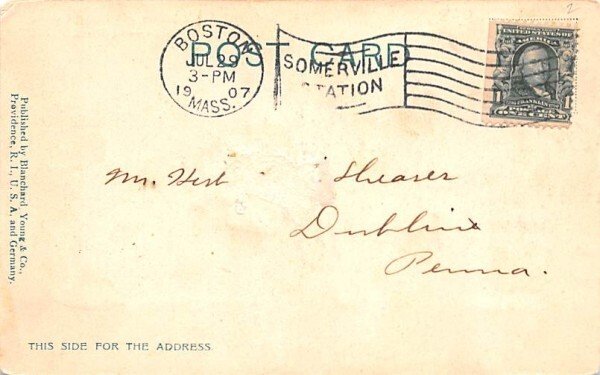 2
POST CARD
BOSTON
JUL 29
3-PM
1907
MASS.
SOMERVILLE
STATION
UNITED STATES OF
AMERICA
FRANKLIN
1 ONE CENT 1
Mr. Herb Shearer
Dublin
Penna.
Published by Blanchard, Young & Co.,
Providence, R. I., U. S. A. and Germany.
THIS SIDE FOR THE ADDRESS.